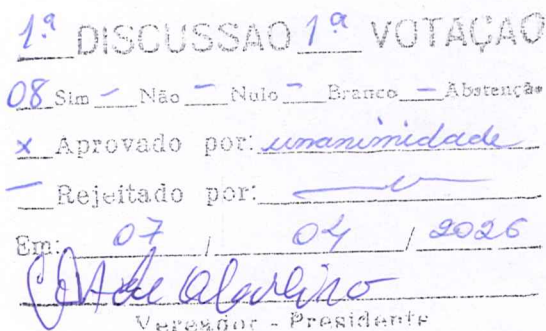 1.ª DISCUSSAO 1.ª VOTAÇAO
08 Sim - Não - Nulo - Branco - Abstenção
x Aprovado por: unanimidade
- Rejeitado por:
Em: 07 / 04 / 2026
Vereador - Presidente